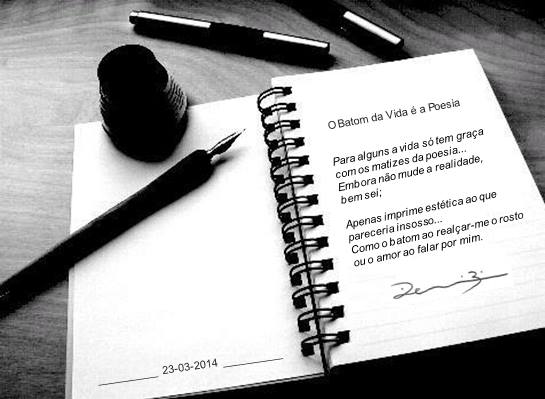 23-03-2014
O Batom da Vida é a Poesia
Para alguns a vida só tem graça
com os matizes da poesia...
Embora não mude a realidade,
bem sei;
Apenas imprime estética ao que
pareceria insosso...
Como o batom ao realçar-me o rosto
ou o amor ao falar por mim.